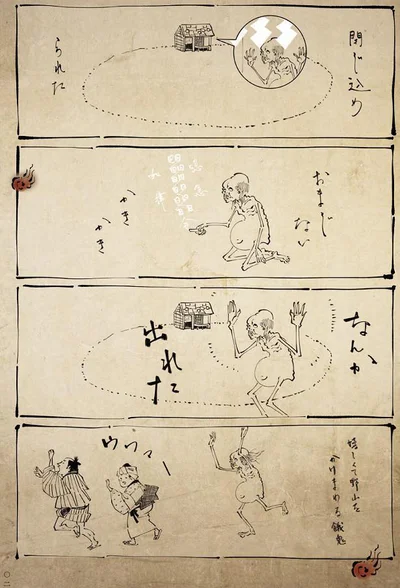 閉じ込め
られた
おまじ
ない
かき
かき
なんか
出れた
ウワァー
嬉しくて野山を
かけまわる餓鬼
〇二